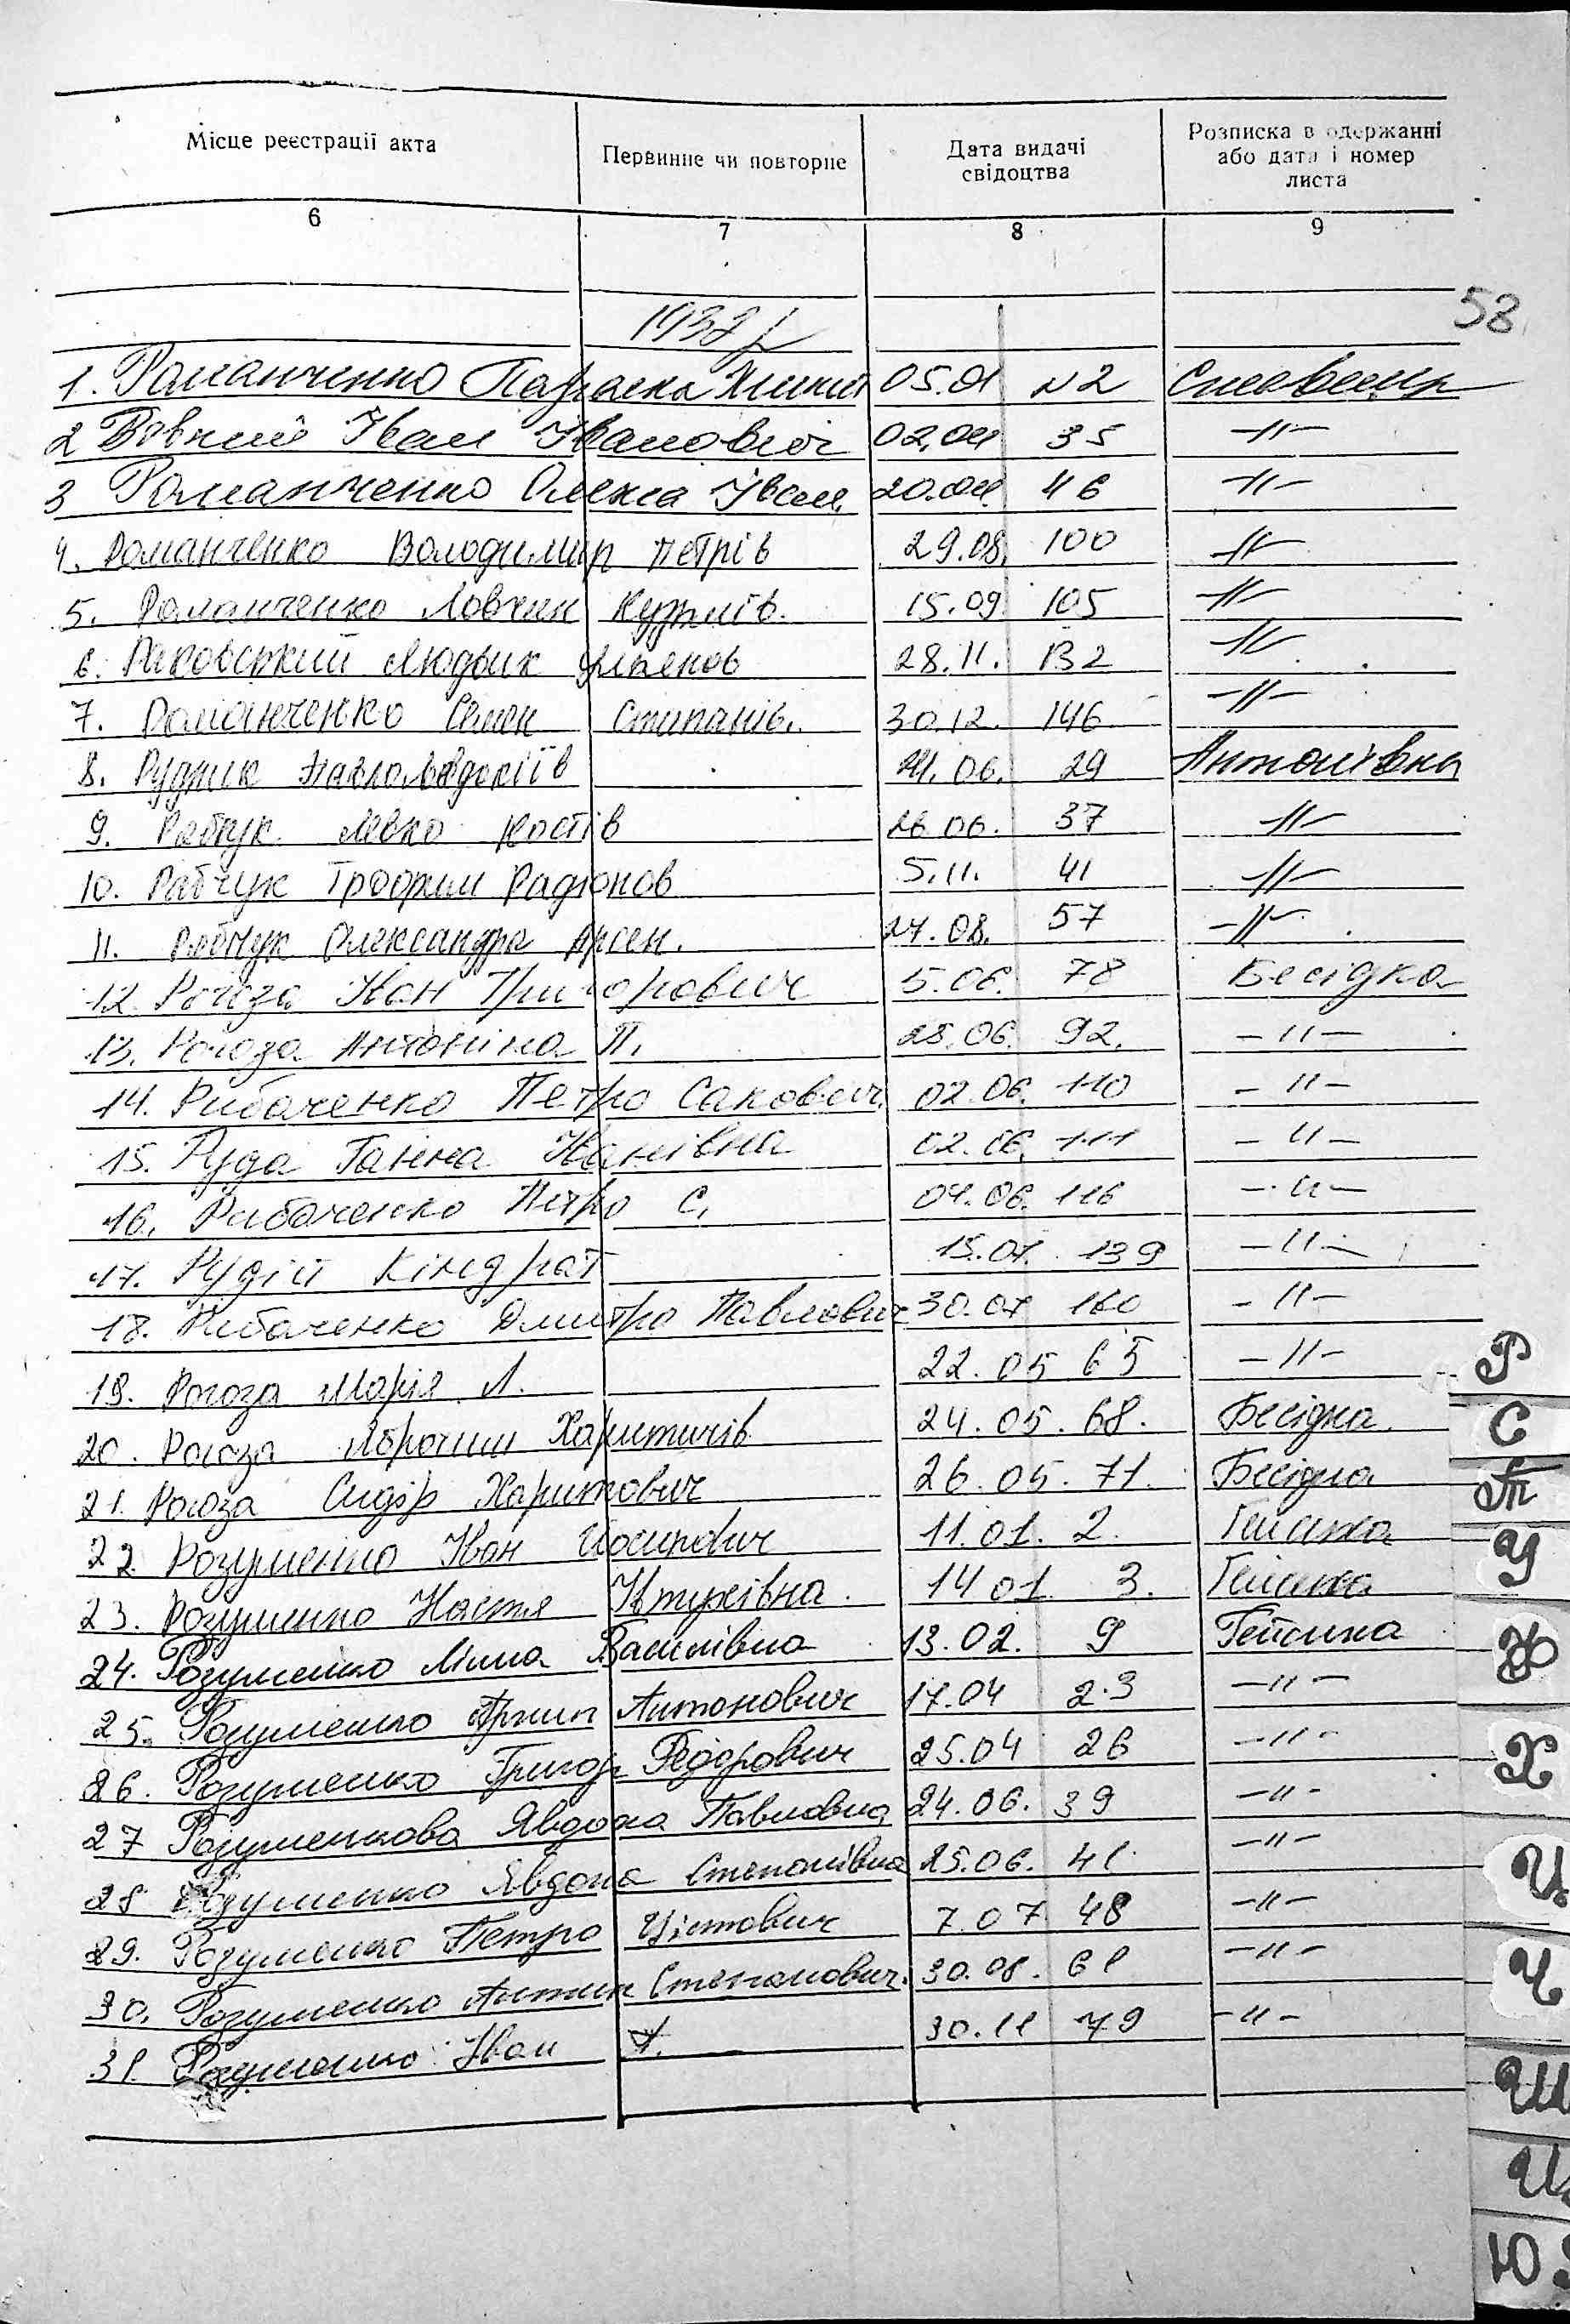 Місце реєстрації акта
Первинне чи повторне
Дата видачі свідоцтва
Розписка в одержанні або дата і номер листа
6 7 8 9
58
1. Романченко Параска 05.01 N2
2 Іван Іванович 02.04 35 -//-
3 Романченко Олекса Іван. 20.04 46 -//-
4. Романченко Володимир Петрів 29.08. 100 -//-
5. Романченко Ловчин Кузьмів. 15.09. 105 -//-
6. Раковський Людвик 28.11. 132 -//-
7. Романченко Семен Стипанів. 30.12. 146 -//-
8. Рудник 06. 29 Антонівка
9. Рабчук Левко Костів 26.06. 37 -//-
10. Рабчук Трофим Радіонов 5.11. 41 -//-
11. Рабчук Олександра Арсен. 08. 57 -//-
12. Рогоза Іван Григорович 5.06. 78 Бесідка
13. Рогоза Антоніна П. 28.06. 92. -//-
14. Рибаченко Петро Сакович. 02.06. 110 -//-
15. Руда Ганна Іванівна 02.06. 111 -//-
16. Рибаченко Петро С. 04.06. 116 -//-
17. Рудій Кіндрат 15.07. 139 -//-
18. Рибаченко Дмитро Павлович 30.07 160 -//-
19. Рогоза Марія Л. 22.05 65 -//-
20. Рогоза Харитинів 24.05. 68. Бесідка
21. Рогоза Сидір Харитович 26.05. 71. Бесідка
22. Розуменко Іван Йосипович 11.01. 2. Гейсиха
23. Розуменко Настя Євтухівна. 14 01. 3. Гейсиха
24. Розуменко Василівна 13.02. 9 Гейсиха
25. Розуменко Антонович 17.04 23 -//-
26. Розуменко Григор Федорович 25.04 26 -//-
27 Розуменкова Явдоха Павловна 24.06. 39 -//-
28 Розуменко Явдоха Степанівна 25.06. 41. -//-
29. Розуменко Петро 7.07 48 -//-
30. Розуменко Антин Степанович. 30.08. 61 -//-
31. Розуменко Іван А. 30.11 79 -//-
Р
С
Т
У
Ф
Х
Ц
Ч
Ш
Щ
Ю